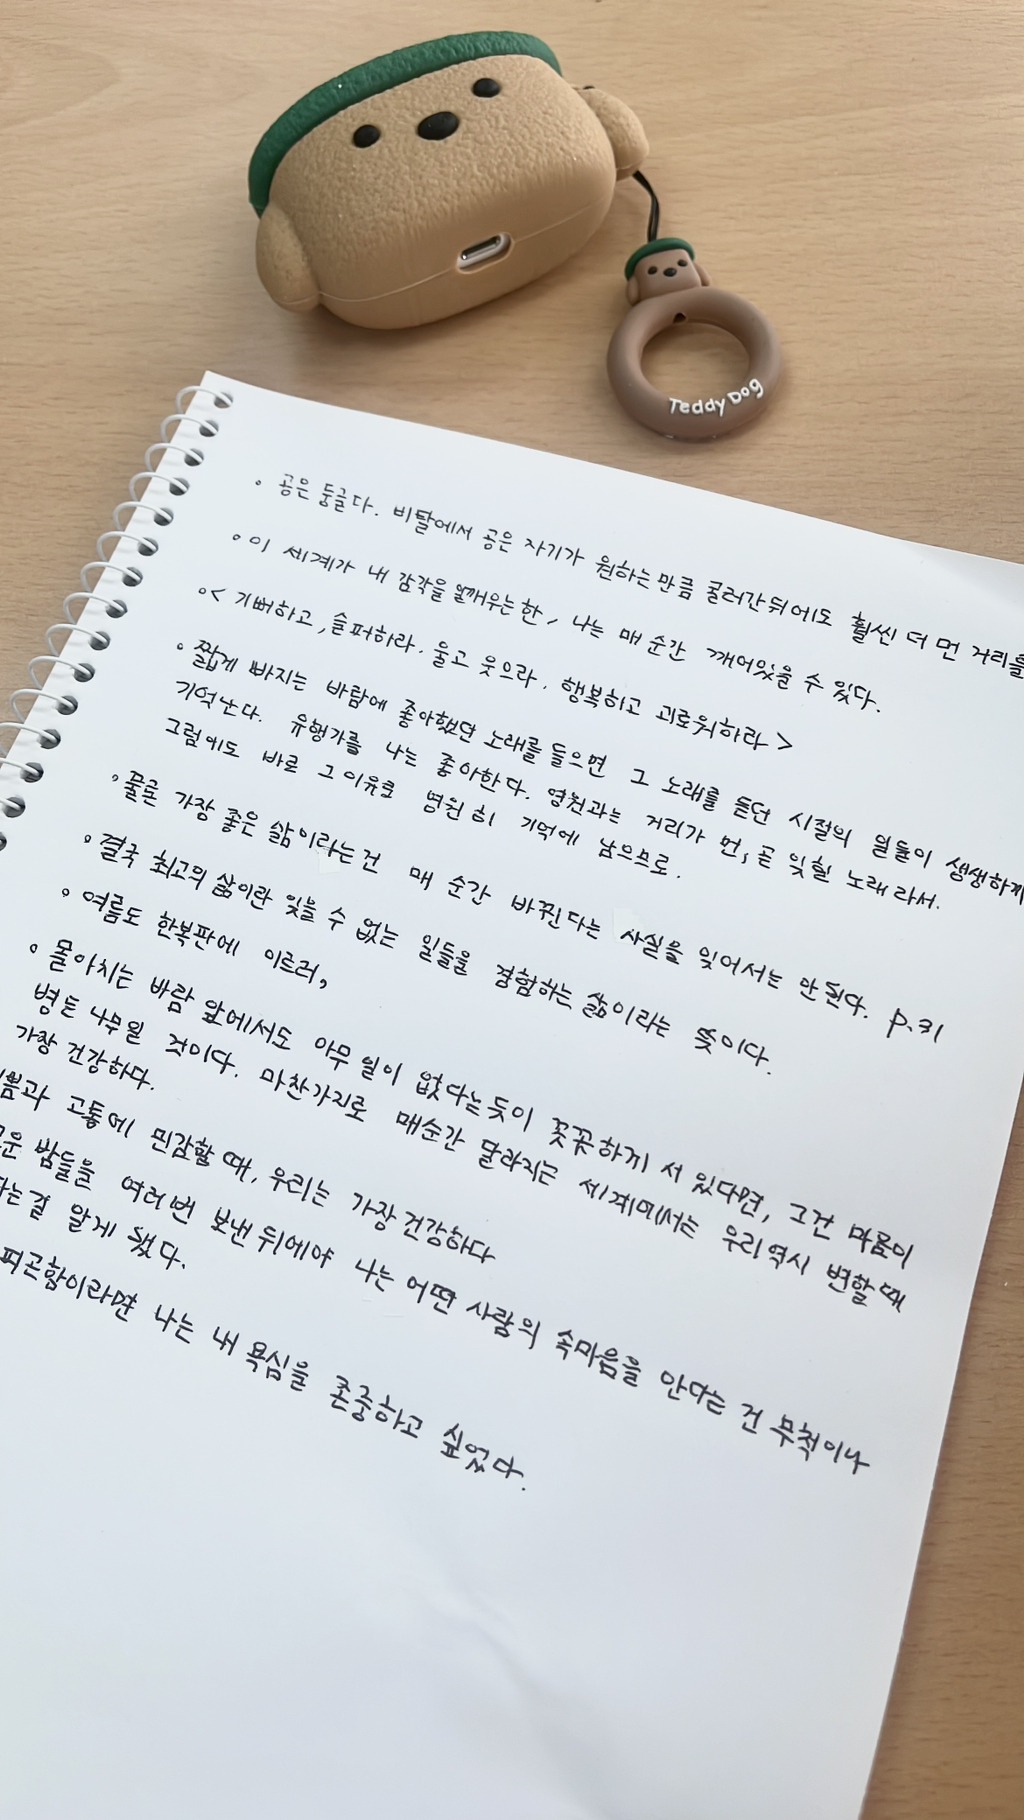 Teddy Dog
• 공은 둥글다. 비탈에서 공은 자기가 원하는 만큼 굴러간 뒤에도 훨씬 더 먼 거리를
• 이 세계가 내 감각을 일깨우는 한, 나는 매 순간 깨어있을 수 있다.
• < 기뻐하고, 슬퍼하라. 울고 웃으라. 행복하고 괴로워하라 >
• 짧게 빠지는 바람에 좋아했던 노래를 들으면 그 노래를 듣던 시절의 일들이 생생하게
기억난다. 유행가를 나는 좋아한다. 영원과는 거리가 먼, 곧 잊힐 노래라서.
그럼에도 바로 그 이유로 영원히 기억에 남으므로.
• 물론 가장 좋은 삶이라는 건 매 순간 바뀐다는 사실을 잊어서는 안된다. p.31
• 결국 최고의 삶이란 잊을 수 없는 일들을 경험하는 삶이라는 뜻이다.
• 여름도 한복판에 이르러,
• 몰아치는 바람 앞에서도 아무 일이 없다는듯이 꼿꼿하게 서 있다면, 그건 마음이
병든 나무일 것이다. 마찬가지로 매순간 달라지는 세계에서는 우리 역시 변할 때
가장 건강하다.
쁨과 고통에 민감할 때, 우리는 가장 건강하다
운 밤들을 여러번 보낸 뒤에야 나는 어떤 사람의 속마음을 안다는 건 무척이나
는걸 알게 됐다.
피곤함이라면 나는 내 욕심을 존중하고 싶었다.